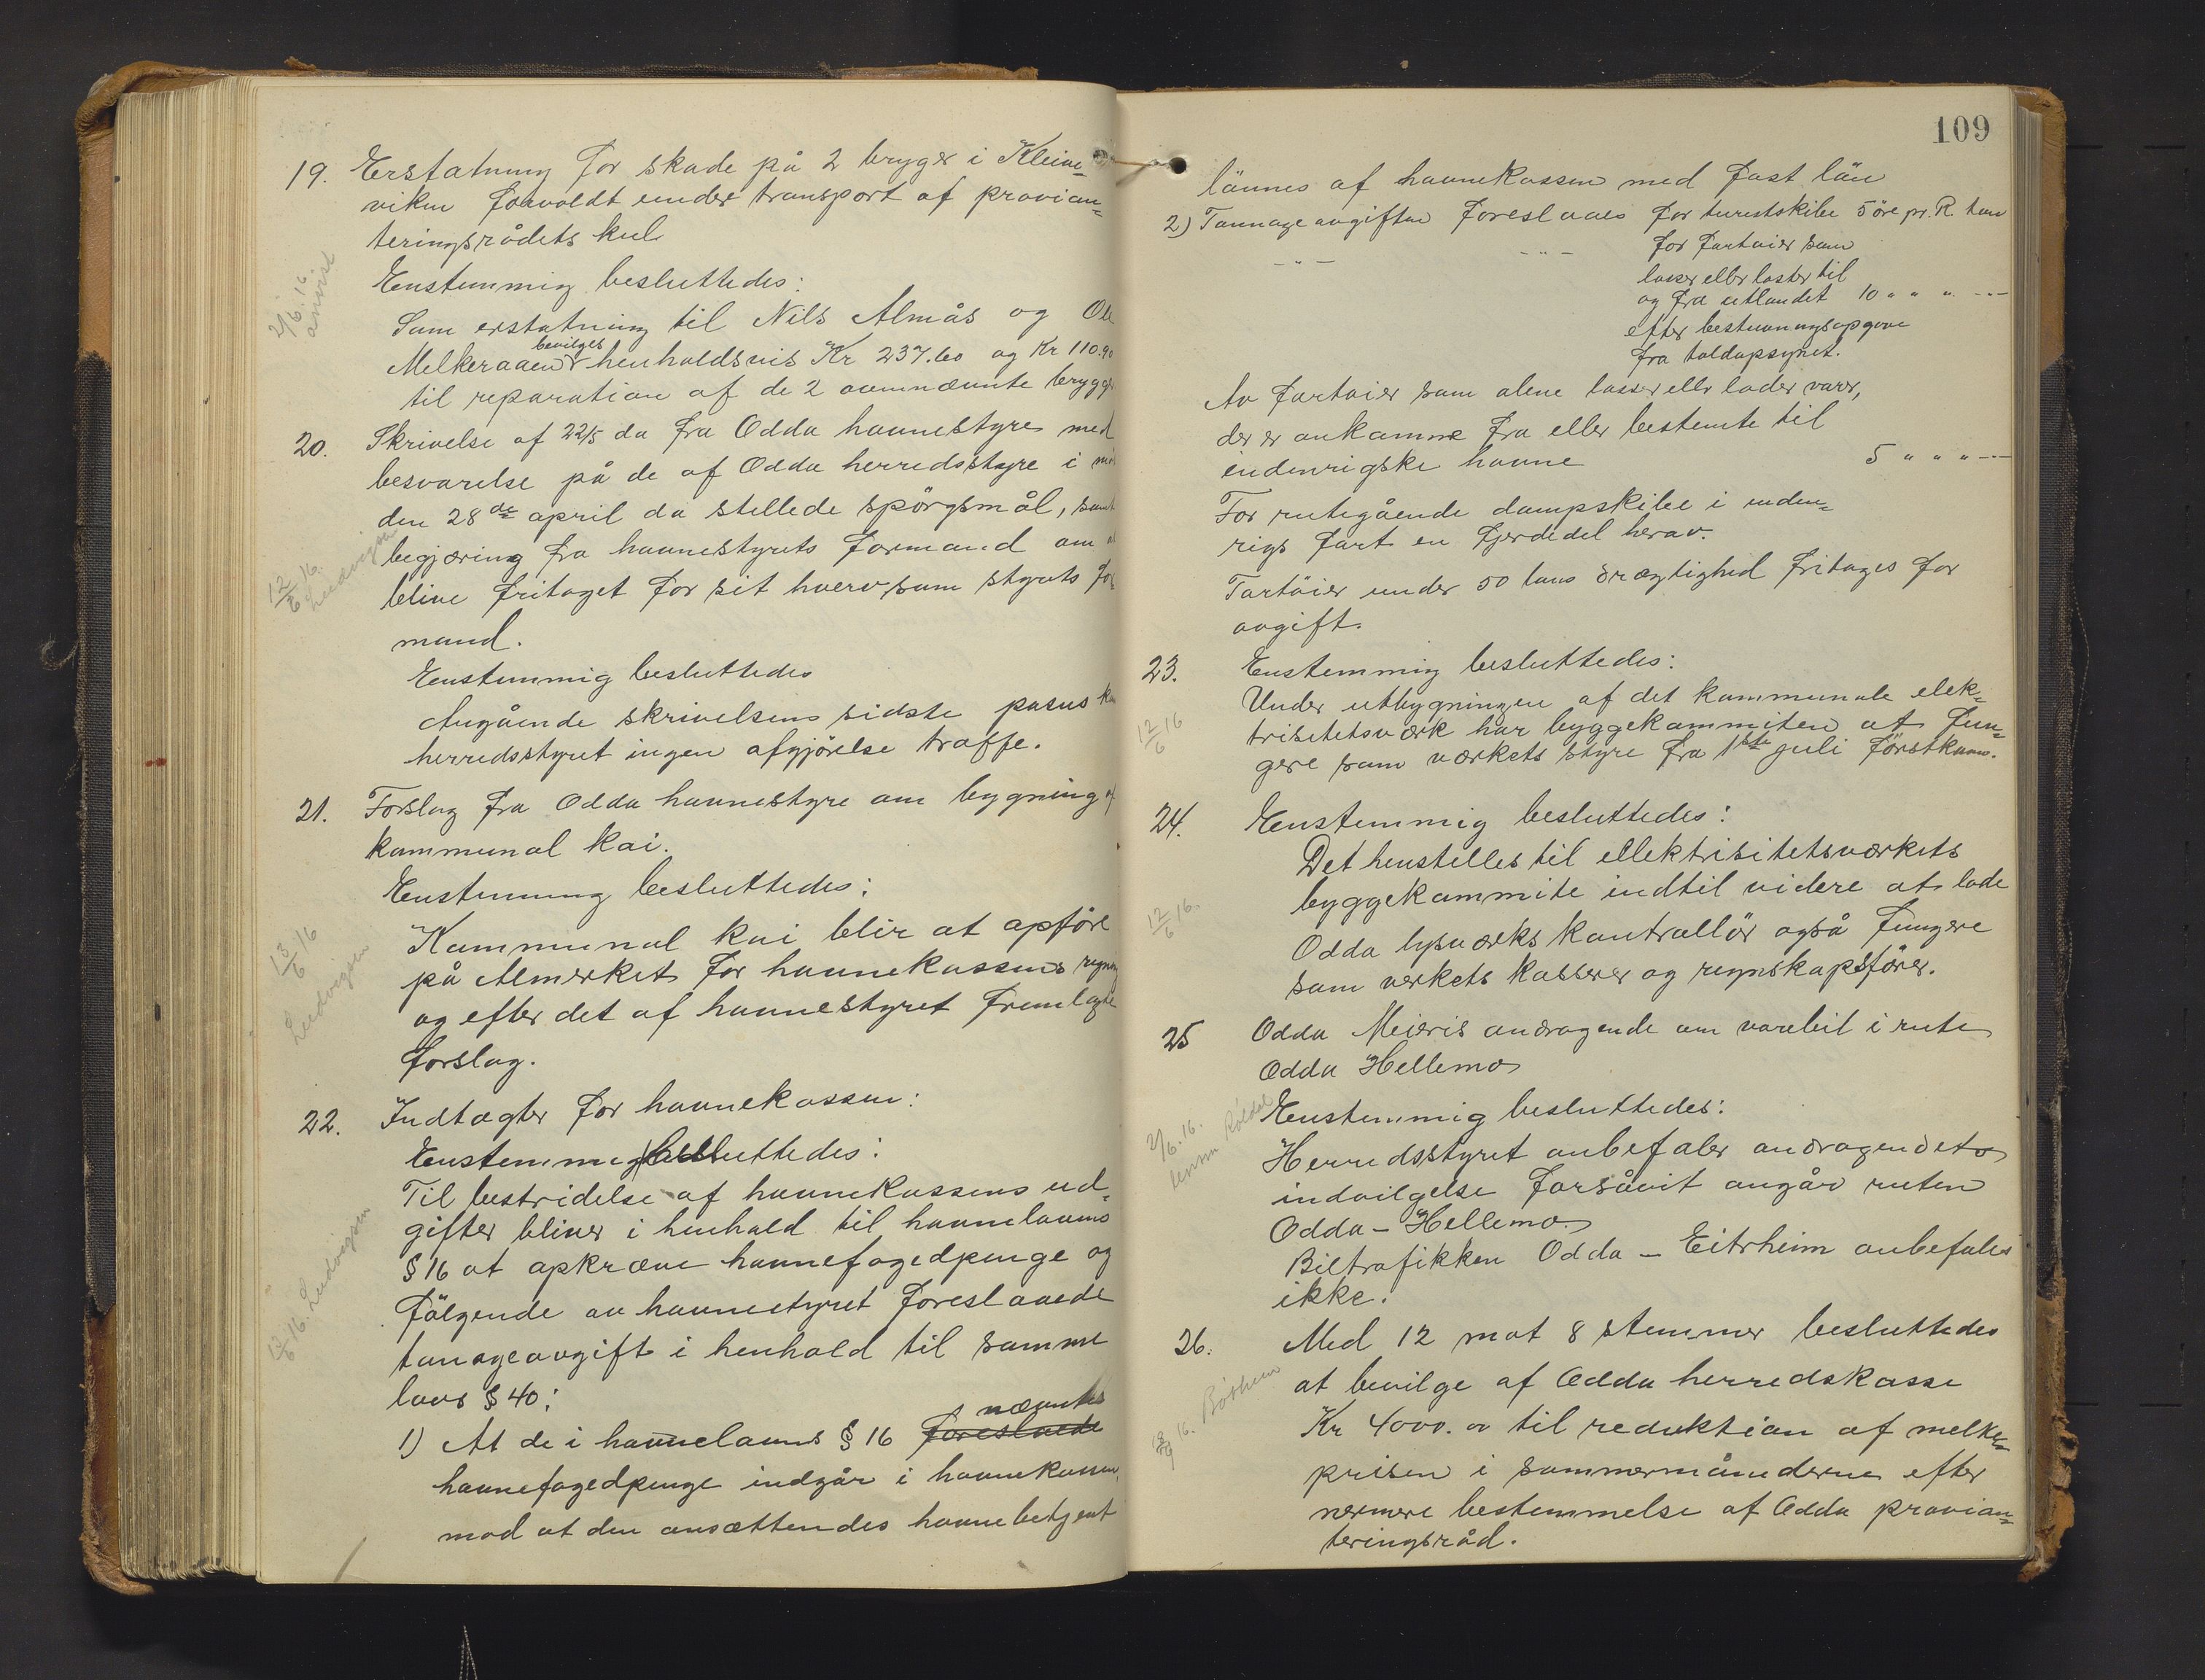 19. Erstatning for skade på 2 brygger i Kleive-
viken forvoldt under transport af provian-
teringsrådets kul
Enstemmig besluttedes:
Som erstatning til Nils Almås og Ole
Melkeraaen bevilges henholdsvis Kr 237.60 og Kr 110.90
til reparation af de 2 ovennævnte brygger
20. Skrivelse af 22/5 da fra Odda havnestyre med
besvarelse på de af Odda herredsstyre i
den 28de april da stillede spörgsmål, samt
begjæring fra havnestyrets formand om
blive fritaget for sit hverv som styrets for
mand.
Enstemmig besluttedes
Angående skrivelsens sidste pasus kan
herredsstyret ingen afgjörelse træffe.
21. Forslag fra Odda havnestyre om bygning af
kommunal kai.
Enstemmig besluttedes:
Kommunal kai blir at opföre
på Almerket for havnekassens regning
og efter det af havnestyret fremlagte
forslag.
22. Indtægter for havnekassen:
Enstemmig besluttedes:
Til bestridelse af havnekassens ud-
gifter bliver i henhold til havnelovens
§ 16 at opkræve havnefogedpenge og
fölgende av havnestyret foreslaaede
tonageavgift i henhold til samme
lovs § 40:
1) At de i havnelovens § 16 foreslaaede nævnte
havnefogedpenge indgår i havnekassen,
mod at den ansættendes havnebetjent
2/6.16
12/6 16. Ludvigsen
13/6 16 Ludvigsen
12/6 16. Ludvigsen
109
lönnes af havnekassen med fast lön
2) Tonnageavgiften foreslaaes for turistskibe 5 öre pr. R. ton
— " — — " — for fartöier som
losser eller laster til
og fra utlandet 10 " " " —
efter bestuvningsopgave
fra toldopsynet.
Av fartöier som alene losser eller lader varer,
der er ankomne fra eller bestemte til
indenrigske havne 5 " " " —
For rutegående dampskibe i inden-
rigs fart en fjerdedel herav.
Fartöier under 50 tons drægtighed fritages for
avgift.
23. Enstemmig besluttedes:
Under utbygningen af det kommunale elek-
trisitetsværk har byggekommiten at fun-
gere som værkets styre fra 1ste juli förstkom.
24. Enstemmig besluttedes:
Det henstilles til ellektrisitetsværkets
byggekommite indtil videre at lade
Odda lysværks kontrollör også fungere
som verkets kasserer og regnskapsförer.
25 Odda Meieris andragende om varebil i rute
Odda Hellemo
Enstemmig besluttedes:
Herredsstyret anbefaler andragendets
indvilgelse forsåvit angår ruten
Odda – Hellemo.
Biltrafikken Odda – Eitrheim anbefales
ikke.
26. Med 12 mot 8 stemmer besluttedes
at bevilge af Odda herredskasse
Kr 4000.00 til reduktion af melke-
prisen i sommermånederne efter
nærmere bestemmelse af Odda provian-
teringsråd.
12/6 16
12/6 16.
2/6.16.